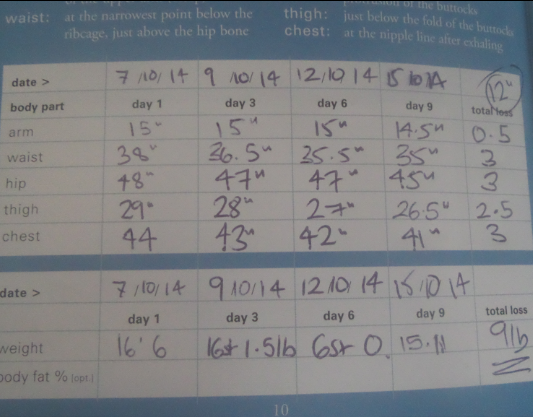 of the buttocks
waist: at the narrowest point below the thigh: just below the fold of the buttocks
ribcage, just above the hip bone chest: at the nipple line after exhaling
date > 7/10/14 9/10/14 12/10/14 15/10/14 12"
body part day 1 day 3 day 6 day 9 total loss
arm 15" 15" 15" 14.5" 0.5
waist 38" 36.5" 35.5" 35" 3
hip 48" 47" 47" 45" 3
thigh 29" 28" 27" 26.5" 2.5
chest 44 43" 42" 41" 3
date > 7/10/14 9/10/14 12/10/14 15/10/14
day 1 day 3 day 6 day 9 total loss
weight 16'6 16st 1.5lb 6st 0 15.11 9lb
body fat % (opt.)
10